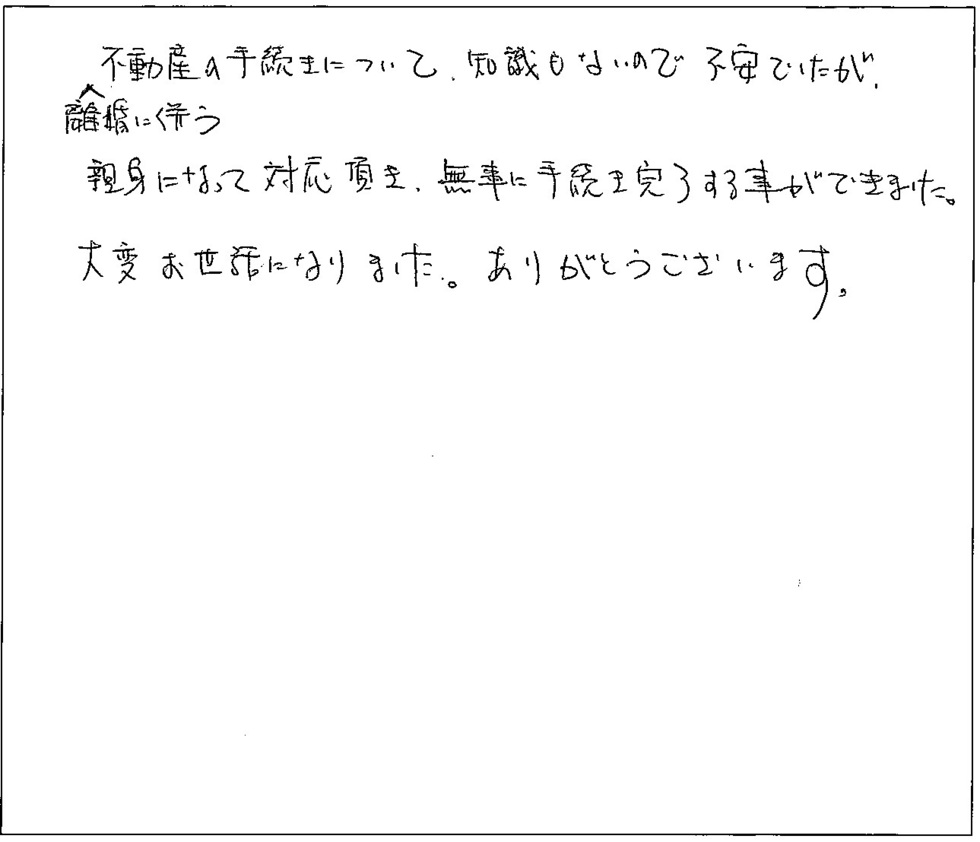 不動産の手続きについて、知識もないので不安でしたが、
離婚に併う
親身になって対応頂き、無事に手続き完了する事ができました。
大変お世話になりました。ありがとうございます。